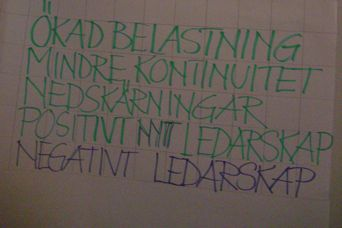 ÖKAD BELASTNING
MINDRE KONTINUITET
NEDSKÄRNINGAR
POSITIVT NYTT LEDARSKAP
NEGATIVT LEDARSKAP